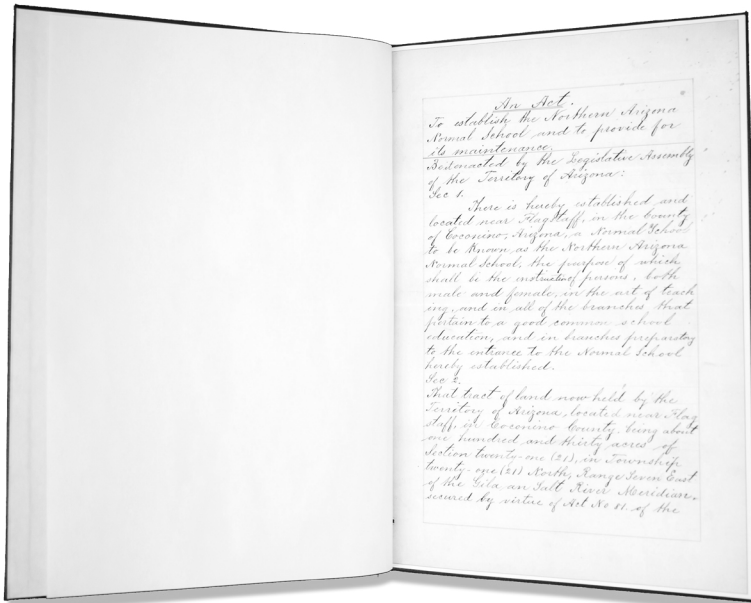 An Act.
To establish the Northern Arizona
Normal School and to provide for
its maintenance.
Be it enacted by the Legislative Assembly
of the Territory of Arizona:
Sec 1.
There is hereby established, and
located near Flagstaff, in the County
of Coconino, Arizona, a Normal School
to be known, as the Northern Arizona
Normal School, the purpose of which
shall be the instruction of persons, both
male and female, in the art of teach
ing, and in all of the branches that
pertain to a good common school
education, and in branches preparatory
to the entrance to the Normal School
hereby established.
Sec 2.
That tract of land now held by the
Territory of Arizona, located near Flag
staff, in Coconino County, being about
one hundred and thirty acres of
Section twenty-one (21), in Township
twenty-one (21) North, Range Seven East
of the Gila an Salt River Meridian,
secured by virtue of Act No 11. of the